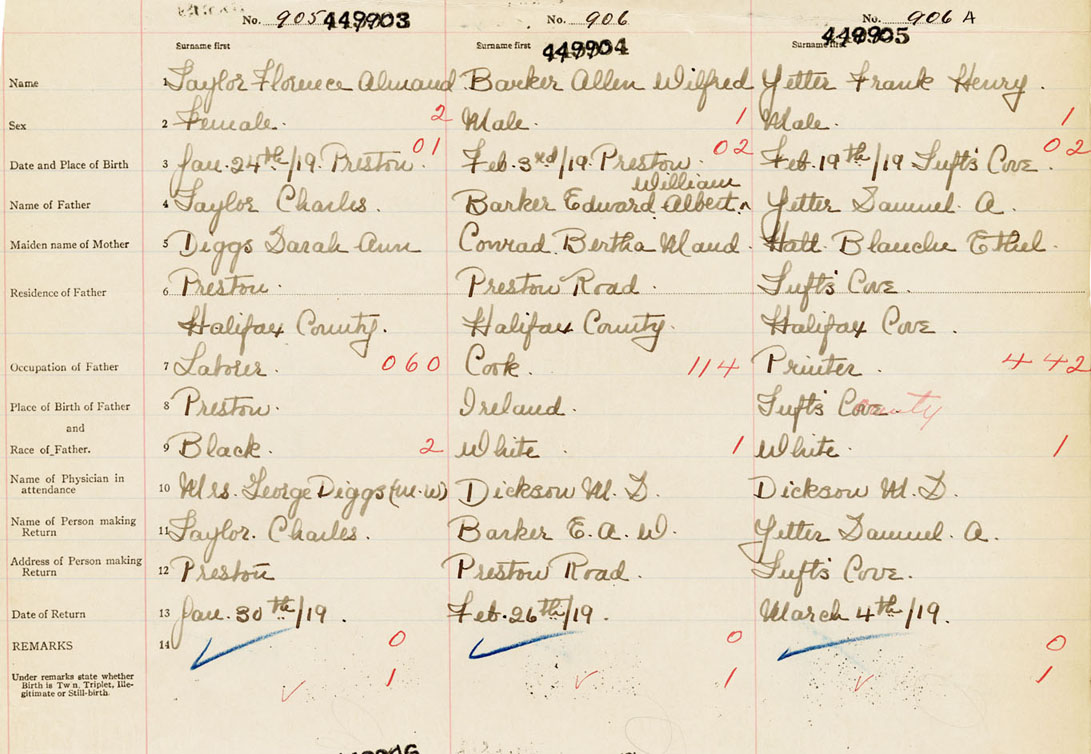 No. 905 449903 No. 906 No. 906 A
Surname first Surname first 449904 Surname first 449905
Name 1 Taylor Florence Almaud Barker Allen Wilfred Yetter Frank Henry.
Sex 2 Female. 2 Male. 1 Male. 1
Date and Place of Birth 3 Jan. 24th/19. Preston. 01 Feb. 3rd/19. Preston. 02 Feb. 19th/19 Tufts Cove. 02
William
Name of Father 4 Taylor Charles. Barker Edward Albert ^ Yetter Samuel A.
Maiden name of Mother 5 Diggs Sarah Ann Conrad Bertha Maud. Hatt Blanche Ethel.
Residence of Father 6 Preston. Preston Road. Tuft's Cove.
Halifax County. Halifax County. Halifax Cove.
Occupation of Father 7 Laborer. 060 Cook. 114 Printer. 442
Place of Birth of Father 8 Preston. Ireland. Tuft's Cove County
and
Race of Father. 9 Black. 2 White. 1 White. 1
Name of Physician in attendance 10 Mrs. George Diggs (M.W) Dickson M.D. Dickson M.D.
Name of Person making Return 11 Taylor. Charles. Barker E.A.W. Yetter Samuel. A.
Address of Person making Return 12 Preston Preston Road. Tuft's Cove.
Date of Return 13 Jan. 30th/19. Feb. 26th/19. March 4th/19.
REMARKS 14 0 0 0
Under remarks state whether Birth is Tw n, Triplet, Ille-
gitimate or Still-birth. 1 1 1